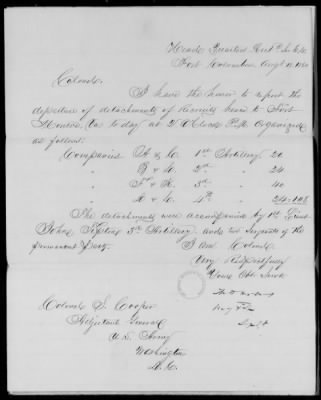 Head Quarters
Fort Columbus Augt 12, 18
Colonel.
I have the honor to report the
departure of detachments of Recruits hence to Fort
Monroe, Va to day at 2 O'Clock P.M. Organized
as follows.
Companies A & C. 1st Artillery 20
" B & 2nd " 24
" F & K. 3rd " 40
" & C 4th " 24=108
The detachments were accompanied by 1st Lieut
3rd Artillery and two Sergeants of the
permanent party.
I am Colonel.
Very Respectfully
Your Obt Servt
Colonel S. Cooper
Adjutant General
U.S. Army
Washington
D.C.